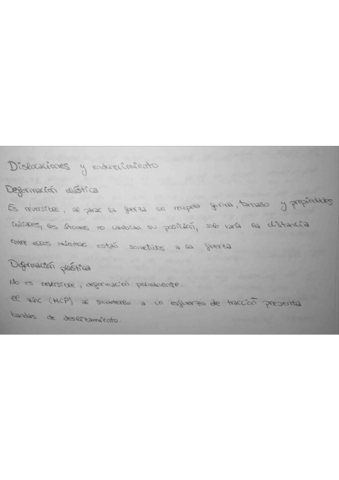 Dislocaciones y endurecimiento
Deformación elástica
Es reversible, al cesar la fuerza se recupera forma, tamaño y propiedades
iniciales, los átomos no cambian su posición, solo varía la distancia
entre ellos mientras están sometidos a la fuerza
Deformación plástica
No es reversible, deformación permanente.
El Zinc (HCP) al someterlo a un esfuerzo de tracción presenta
bandas de deslizamiento.